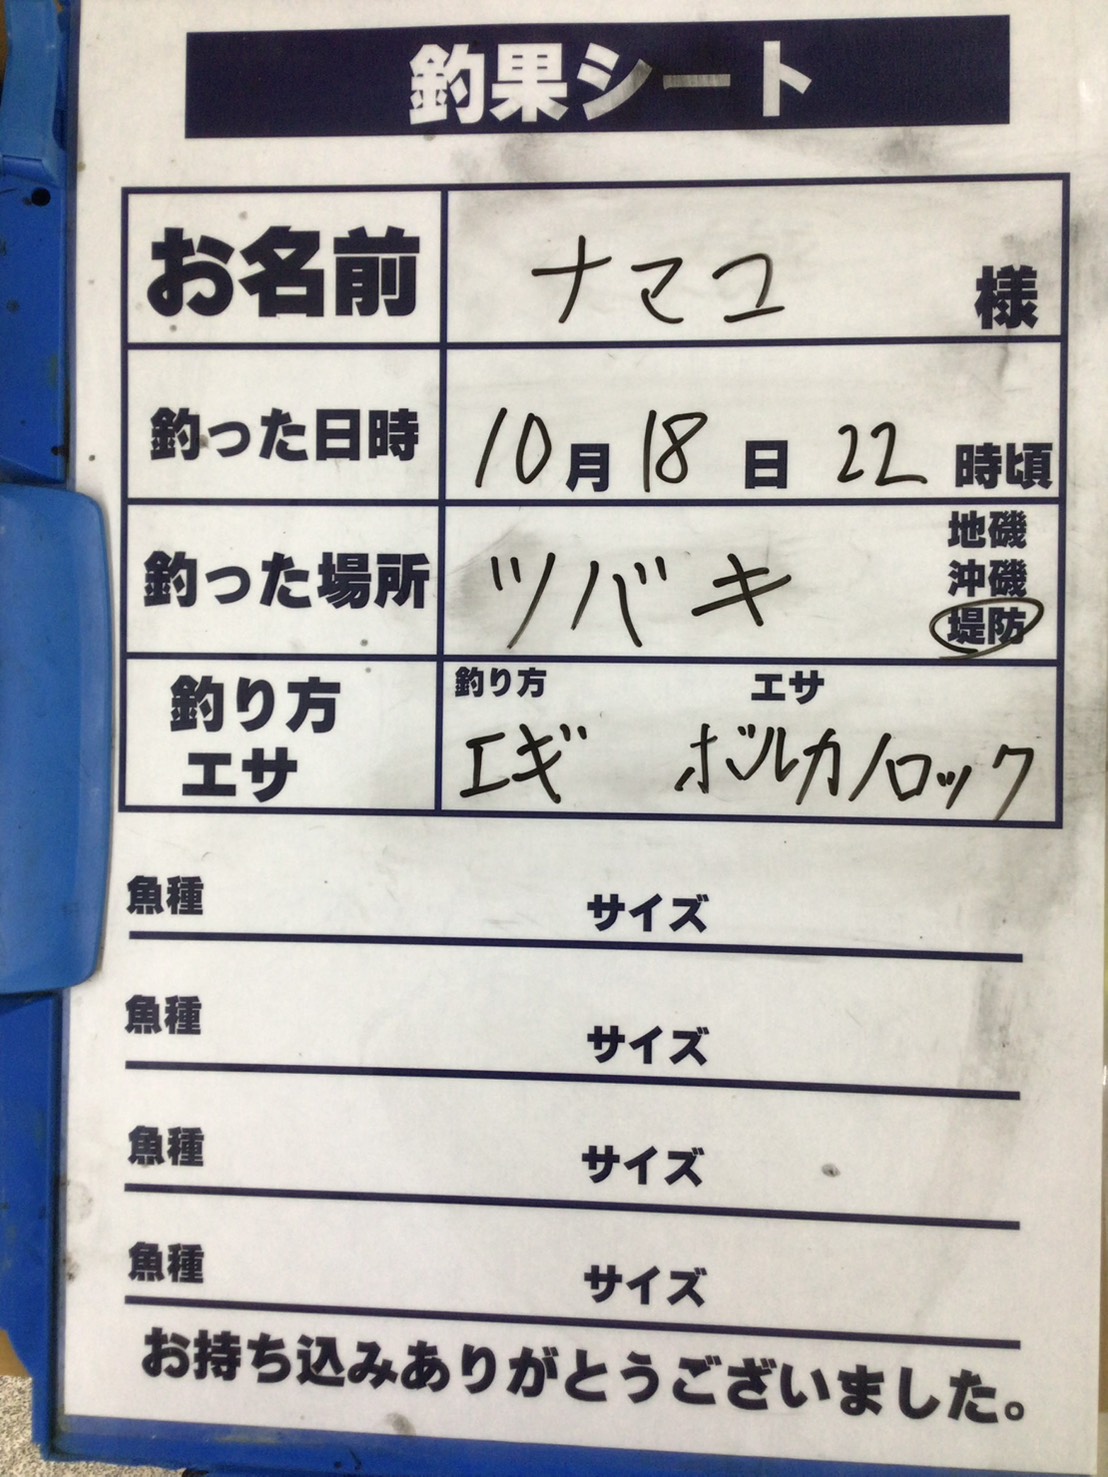 釣果シート
お名前 ナマユ 様
釣った日時 10月18日 22時頃
釣った場所 ツバキ 地磯
沖磯
堤防
釣り方 エサ
釣り方
エサ エギ ボルカノロック
魚種 サイズ
魚種 サイズ
魚種 サイズ
魚種 サイズ
お持ち込みありがとうございました。